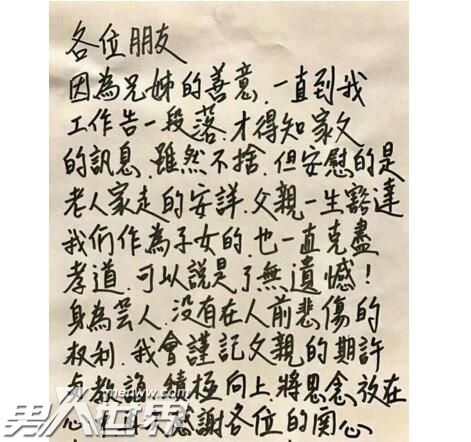 各位朋友
因為兄姊的善意,一直到我
工作告一段落,才得知家父
的訊息,雖然不捨,但安慰的是
老人家走的安詳,父親一生豁達
我们作為子女的,也一直克盡
孝道,可以說是了無遺憾!
身為芸人,没有在人前悲傷的
权利,我會謹記父親的期許
與教誨,積極向上,將思念放在
心 感謝各位的関心
男人世界
nrenww.com